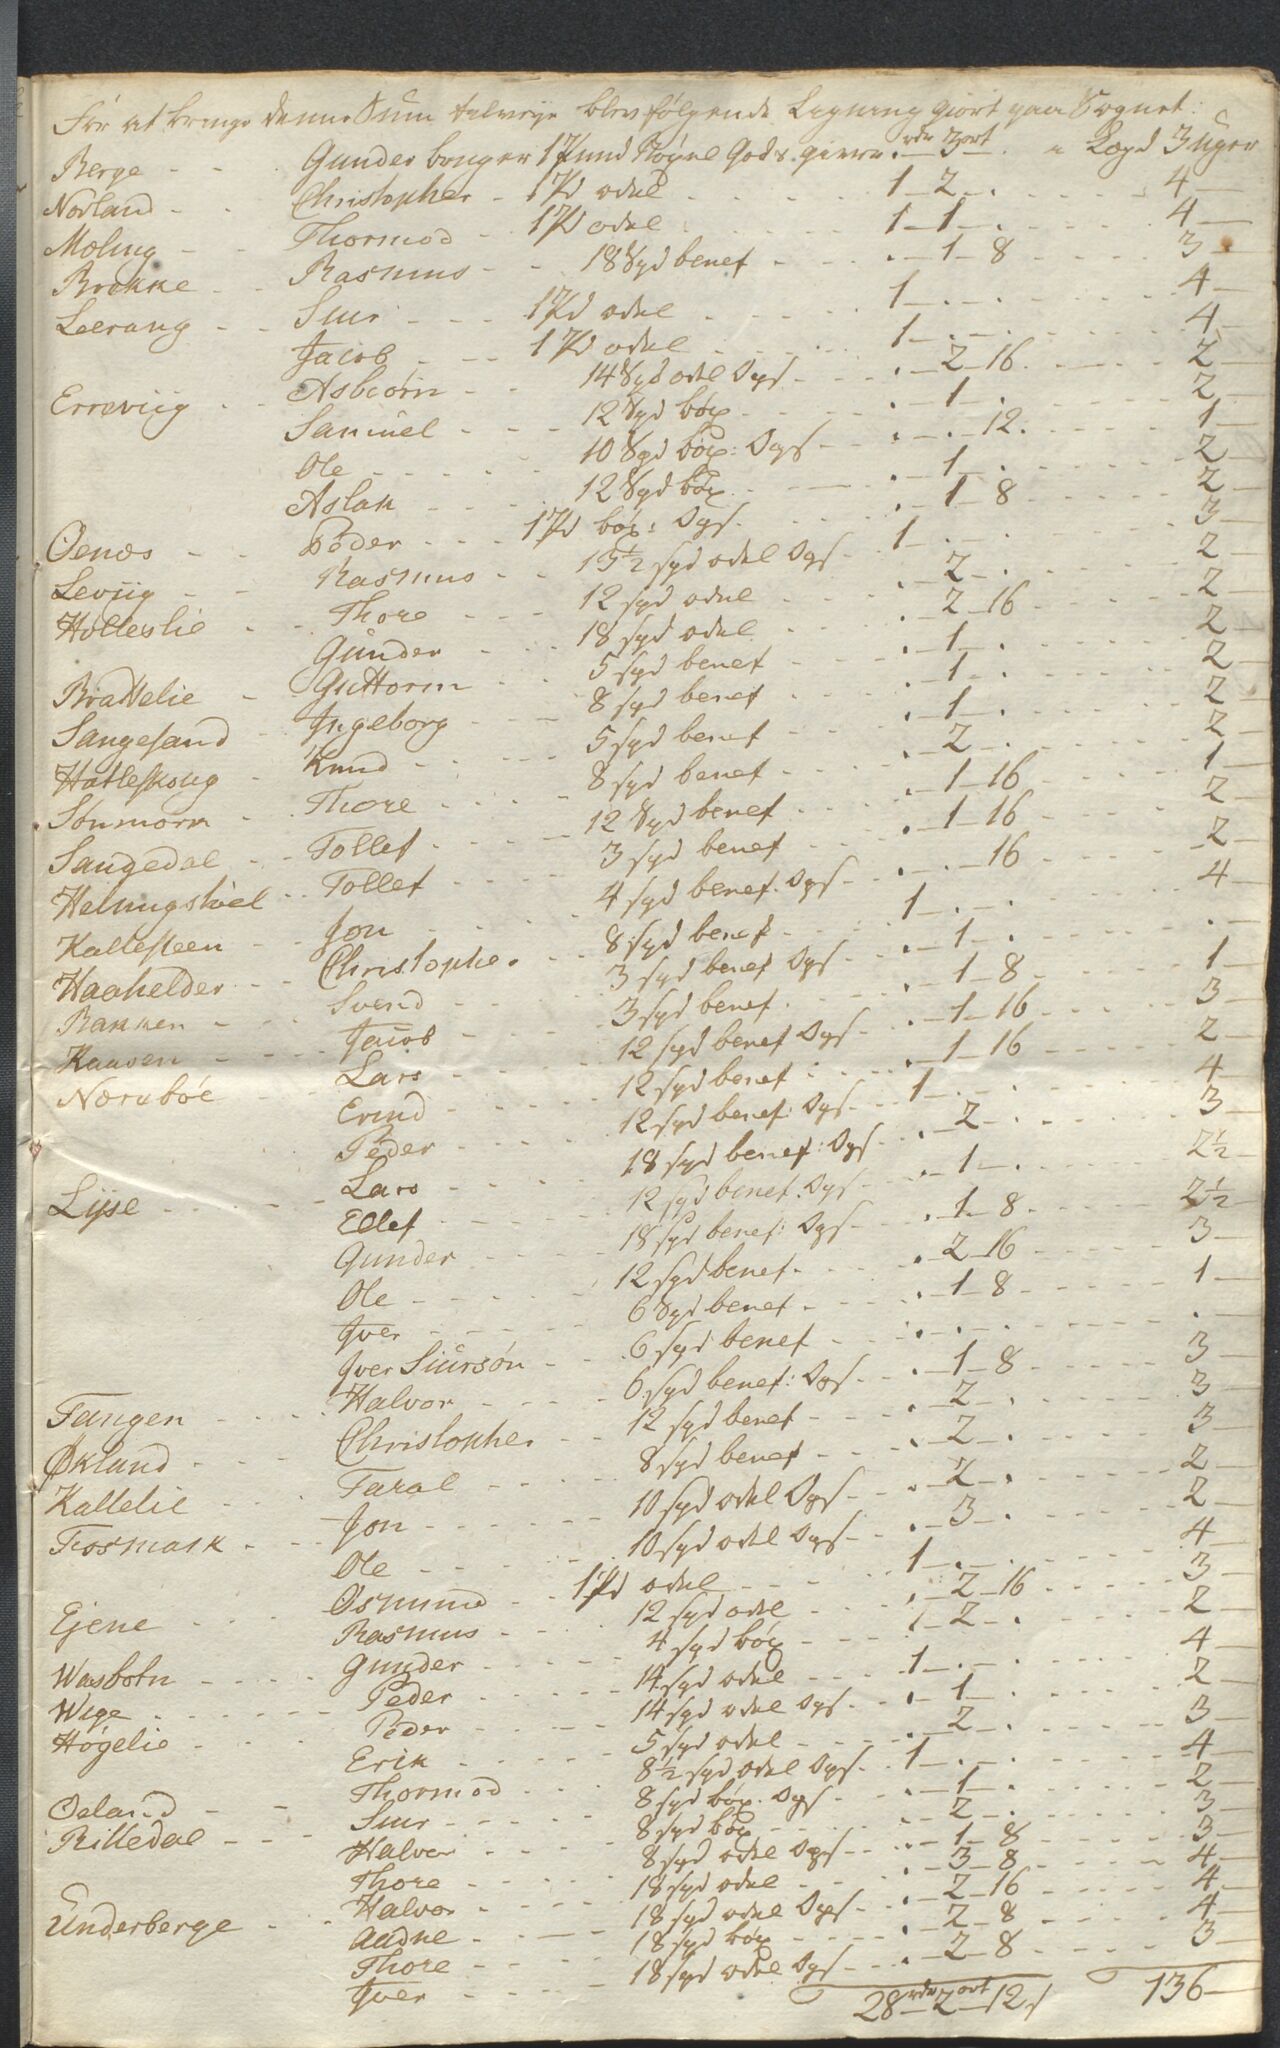 For at bringe denne Sum tilveye blev følgende Ligning giort paa Sognet:
Berge - - Gunder bruger 1 Pund Kogne Gods. giver . rdr 3 ort . a Lægd 3 uger
Norland - - Christopher - 1 Pd odel - - - 1 - 2 - . - - - 4 -
Moluug - Thormod - - 1 Pd odel - - - 1 - 1 - . - - - 4 -
Brokke - - Rasmus - - 18 Spd benef - - . - 1 - 8 - - - 3 -
Leerang - - Siur - - - 1 Pd odel - - - 1 - . - . - - - 4 -
Jacob - - - 1 Pd odel - - - 1 - . - . - - - 4 -
Erreviig - - Asbiørn - - 14 Spd odel Dgs - - . - 2 - 16 . - - - 2 -
Samuel - - - 12 Spd böx - - - . - 1 - . - - - 2 -
Ole - - - 10 Spd böx: Dgs - - . - . - 12 . - - - 1 -
Aslak - - - 12 Spd böx - - . - 1 - . - - - 2 -
Oenes - - Peder - - - 1 Pd böx: Dgs - . - 1 - 8 - - - 2 -
Leviig - - Rasmus - - 15½ spd odel Dgs - 1 - . - . - - - 3 -
Holleslie - - Thore - - - 12 spd odel - - . - 2 - . - - - 2 -
Gunder - - - 18 spd odel - - . - 2 - 16 - - - 2 -
Brattelie - Guttorm - - - 5 spd benef - - . - 1 - . - - - 2 -
Sangesand - Ingeborg - - - 8 spd benef - - . - 1 - . - - - 2 -
Hatleskoug - Knud - - - 5 spd benef - - . - 1 - . - - - 2 -
Sønmork - Thore - - - 8 spd benef - - . - 2 - . - - - 2 -
Sangedal - - Tollef - - - 12 Spd benef - - . - 1 - 16 - - - 1 -
Helmigstøel - - Tollef - - - 3 spd benef - - . - 1 - 16 - - - 2 -
Kallesteen - - Jon - - - 4 spd benef. Dgs - . - . - 16 - - - 2 -
Haahelder - - Christopher - - 8 spd benef - - 1 - . - . - - - 4 -
Bakken - - Svend - - - 3 spd benef Dgs - . - 1 - . - - - .
Kaasen - - - Jacob - - - 3 spd benef - - . - 1 - 8 - - - 1 -
Nærebøe - - Lars - - - 12 spd benef Dgs - . - 1 - 16 - - - 3 -
Erind - - - 12 spd benef - - . - 1 - 16 - - - 2 -
Peder - - - 12 spd benef: Dgs - 1 - . - . - - - 4 -
Lyse - - - Lars - - - 18 spd benef: Dgs - . - 2 - . - - - 3 -
Ellef - - - 12 spd benef. Dgs - . - 1 - . - - - 2½
Gunder - - - 18 spd benef: Dgs - . - 1 - 8 - - - 2½
Ole - - - 12 spd benef - - . 2 - 16 - - - 3 -
Iver - - - 6 Spd benef - - . - 1 - 8 - - - 1 -
Iver Siursøn - - 6 spd benef - - . - . - . - - - .
Tangen - - - Halvor - - - 6 spd benef: Dgs - . - 1 - 8 - - - 3 -
Økland - - - Christopher - - 12 spd benef - - . - 2 - . - - - 3 -
Kallelie - - Taral - - - 8 spd benef - - . - 2 - . - - - 3 -
Fosmark - - Jon - - - 10 spd odel Dgs - . - 2 - . - - - 2 -
Ole - - - 10 spd odel Dgs - . - 3 - . - - - 2 -
Ejene - - - Osmund - - 1 Pd odel - - - 1 - . - . - - - 4 -
Rasmus - - - 12 spd odel - - . - 2 - 16 - - - 3 -
Wasbotn - - - Gunder - - - 4 spd böx - - 1 - 2 - . - - - 2 -
Wige - - - Peder - - - 14 spd odel - - 1 - . - . - - - 4 -
Høgelie - - - Peder - - - 14 spd odel Dgs - . - 1 - . - - - 2 -
Erik - - - 5 spd odel - - . - 2 - . - - - 3 -
Oeland - - Thormod - - - 8½ spd odel Dgs - 1 - . - . - - - 4 -
Rilledal - - - Siur - - - 8 spd böx. Dgs - . - 1 - . - - - 2 -
Halvor - - - 8 spd böx - - . - 2 - . - - - 3 -
Thore - - - 8 spd odel Dgs - . - 1 - 8 - - - 3 -
Underberge - - Halvor - - - 18 spd odel - - . - 3 - 8 - - - 4 -
Aadne - - - 18 spd odel Dgs - . - 2 - 16 - - - 4 -
Thore - - - 18 spd böx - - . - 2 - 8 - - - 4 -
Iver - - - 18 spd odel Dgs - . - 2 - 8 - - - 3 -
28 rdr 2 ort 12 s 136 -